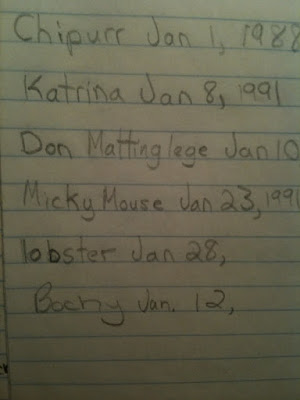 Chipurr Jan 1, 1988
Katrina Jan 8, 1991
Don Mattinglege Jan 10
Micky Mouse Jan 23, 1991
lobster Jan 28,
Bochy Jan. 12,